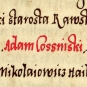 ki starosta Rawsk
Adam Cossniski.
Nikolaiowicz Hai